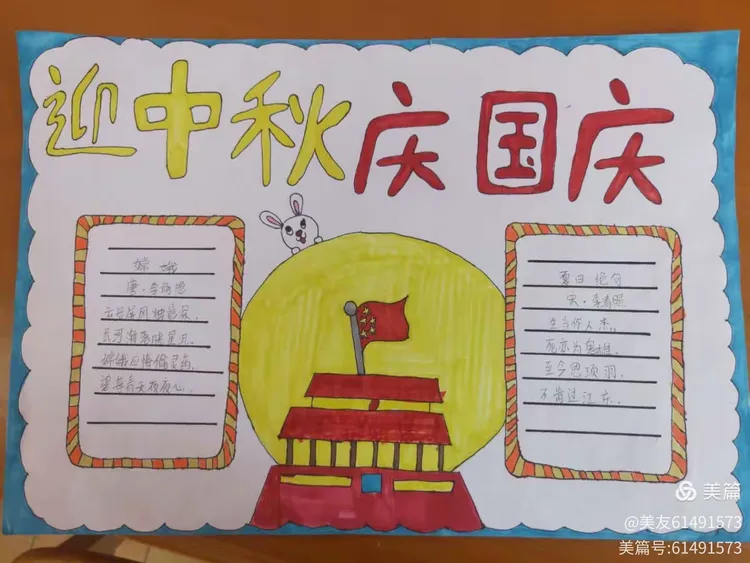 迎中秋庆国庆
嫦娥
唐·李商隐
云母屏风烛影深,
长河渐落晓星沉。
嫦娥应悔偷灵药,
碧海青天夜夜心。
夏日绝句
宋·李清照
生当作人杰,
死亦为鬼雄。
至今思项羽,
不肯过江东。
美篇
@美友61491573
美篇号:61491573